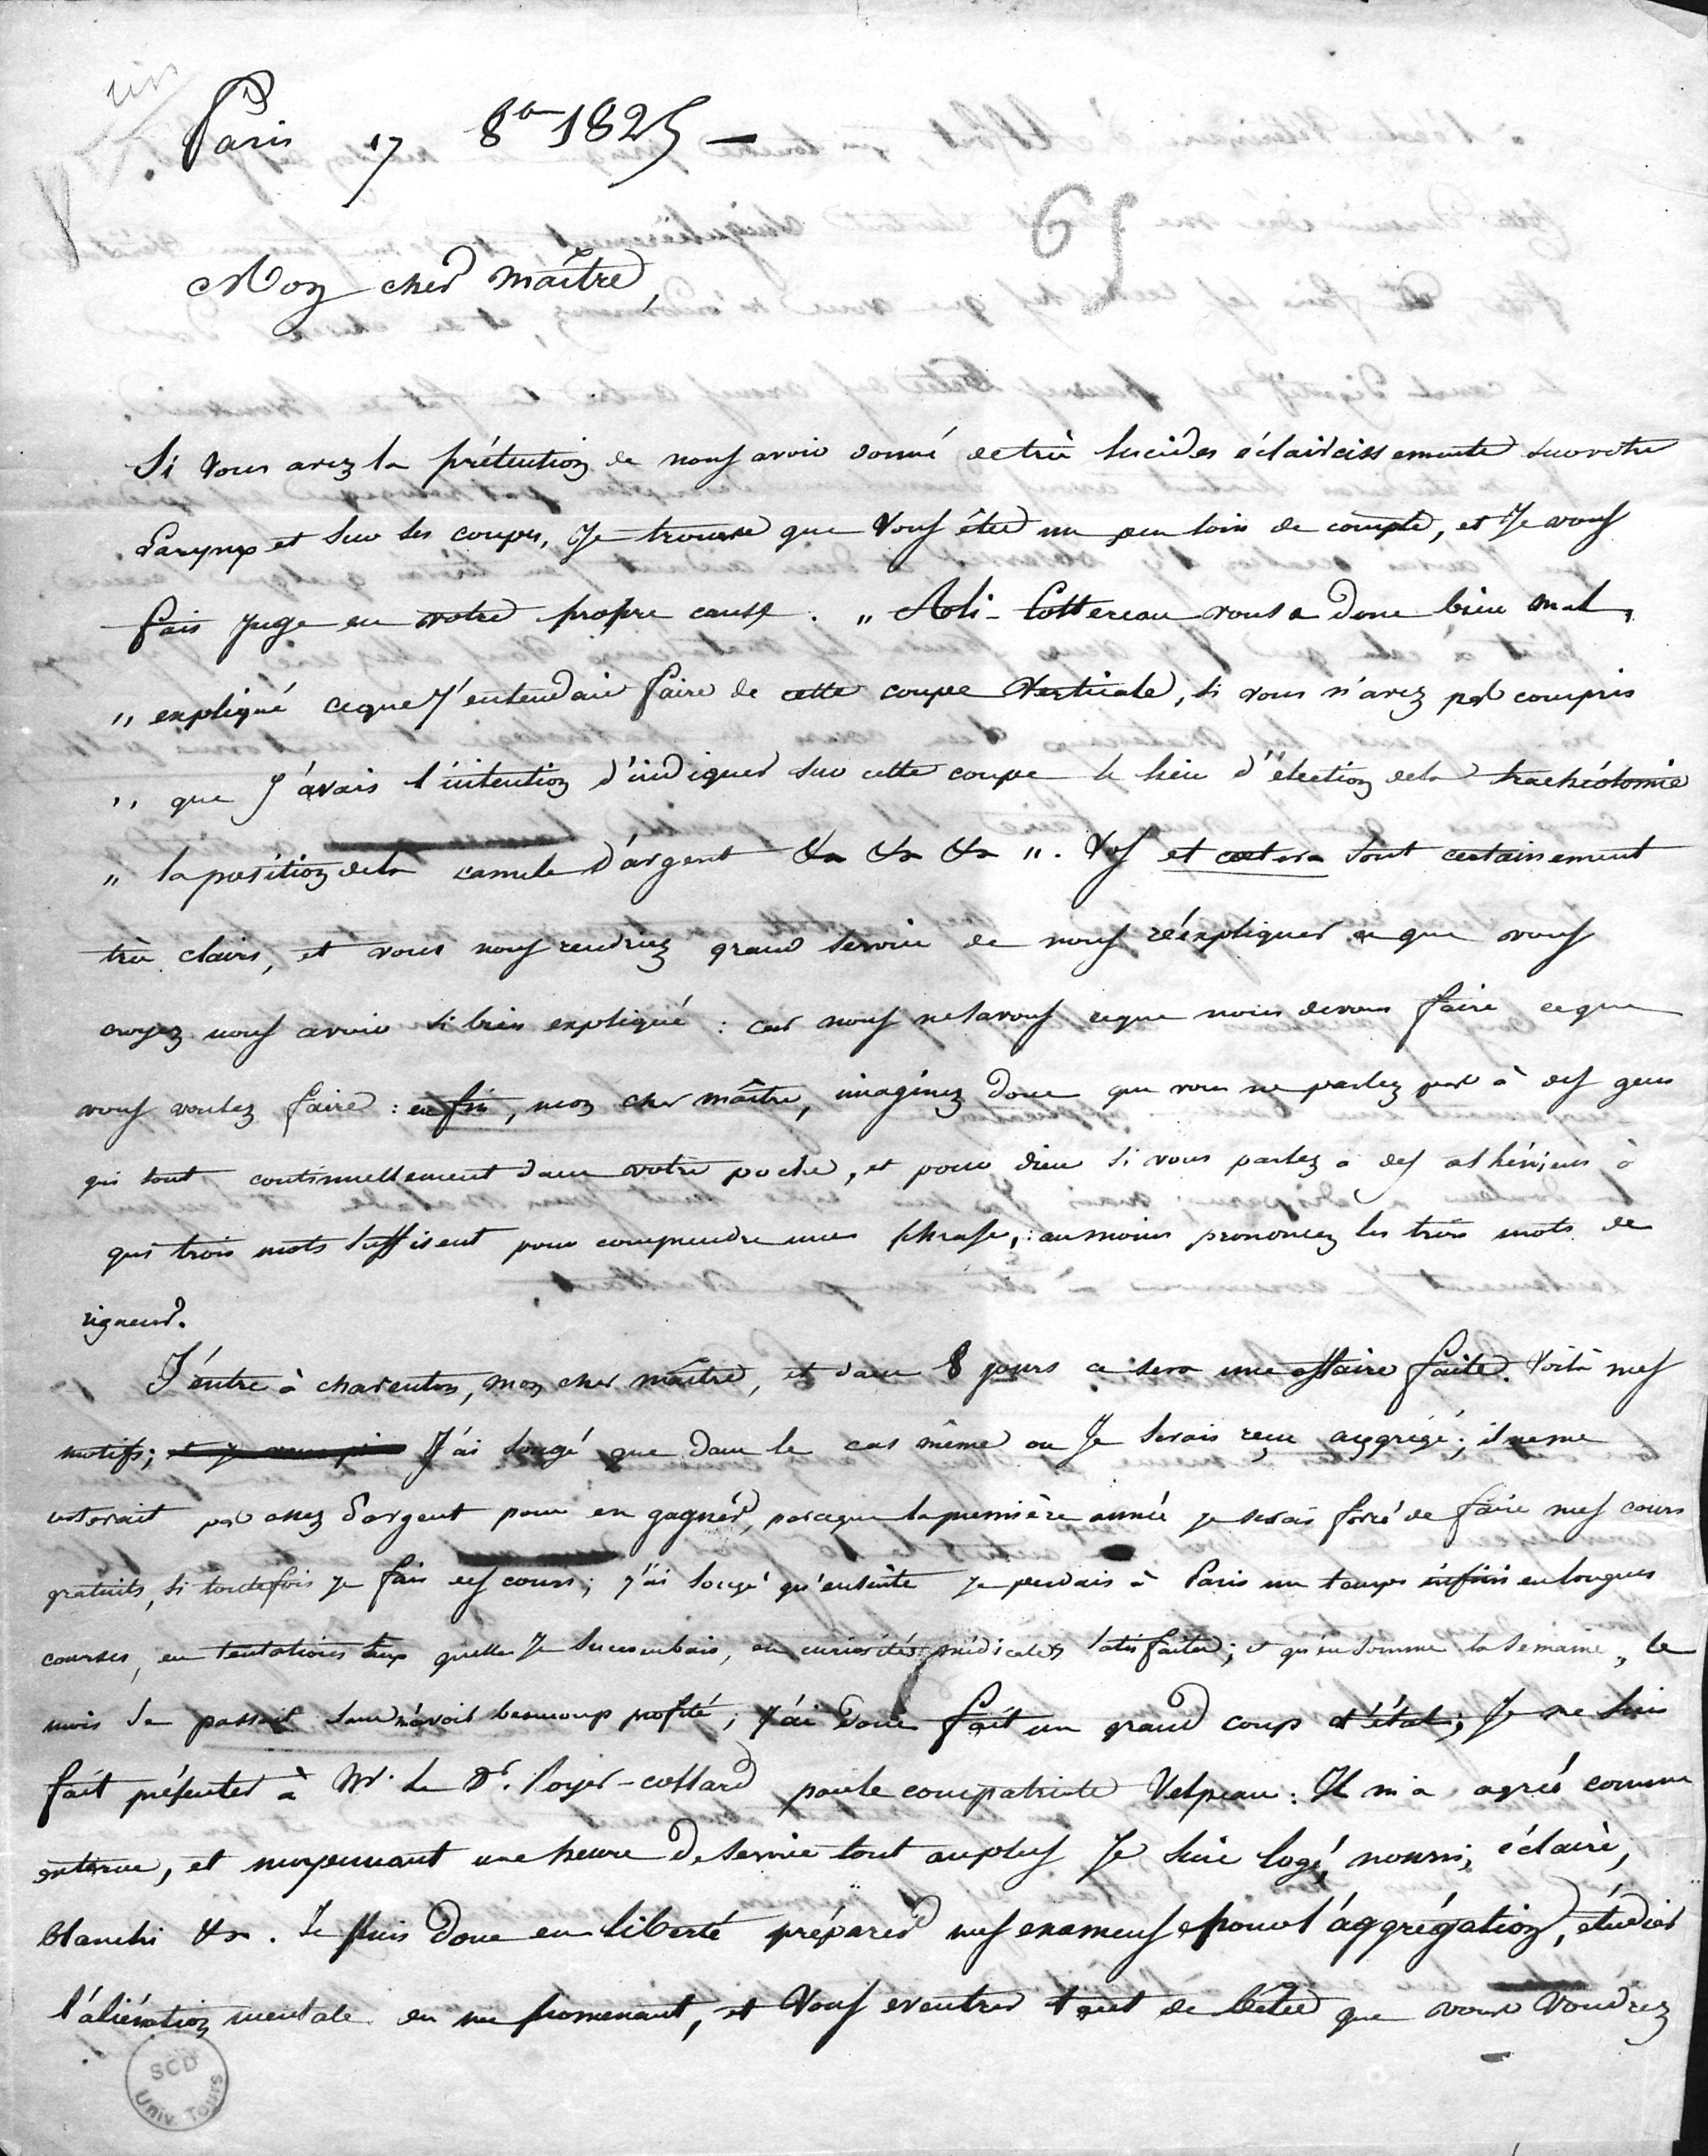 Paris 17 8bre 1825 —
69
Mon cher maître,
Si vous avez la prétention de nous avoir donné de très lucides éclaircissements sur votre
Larynx et sur ses coupes, je trouve que vous êtes un peu loin de compte, et je vous
fais juge en votre propre cause. „ Cottereau vous a donc bien mal
„ expliqué ce que j'entendais faire de cette coupe verticale, si vous n'avez pas compris
„ que j'avais l'intention d'indiquer sur cette coupe le lieu d'élection de la trachéotomie
„ la position de la canule d'argent &a &a &a „. Vos et cætera sont certainement
très clairs, et vous nous rendriez grand service de nous réexpliquer ce que vous
croyez nous avoir si bien expliqué : car nous ne savons ce que nous devons faire ce que
vous voulez faire : enfin, mon cher maître, imaginez donc que vous ne parlez pas à des gens
qui sont continuellement dans votre poche, et pour dieu si vous parlez à des athéniens à
qui trois mots suffisent pour comprendre une phrase, : au moins prononcez les trois mots de
rigueur.
J'entre à charenton, mon cher maître, et dans 8 jours ce sera une affaire faite. Voilà mes
motifs; J'ai songé que dans le cas même ou je serais reçu aggrégé; il ne me
resterait pas assez d'argent pour en gagner, parceque la première année je serais forcé de faire mes cours
gratuits, si toutefois je fais des cours; j'ai songé qu'ensuite je perdais à Paris un temps infini en longues
courses, en tentations aux quelles je succombais, en curiosités médicales satisfaites; et qu'en somme la semaine, le
mois se passait sans n'avoir beaucoup profité; j'ai donc fait un grand coup d'état; je me suis
fait présenter à Mr. le Dr. Royer-collard par le compatriote Velpeau: Il m'a agréé comme
interne, et moyennant une heure de service tout au plus je suis logé, nourri, éclairé,
blanchi &a. Je puis donc en liberté préparer mes examens pour l'aggrégation, étudier
l'aliénation mentale en me promenant, et vous eventrer tant de bêtes que vous voudrez
SCD
Univ. Tours